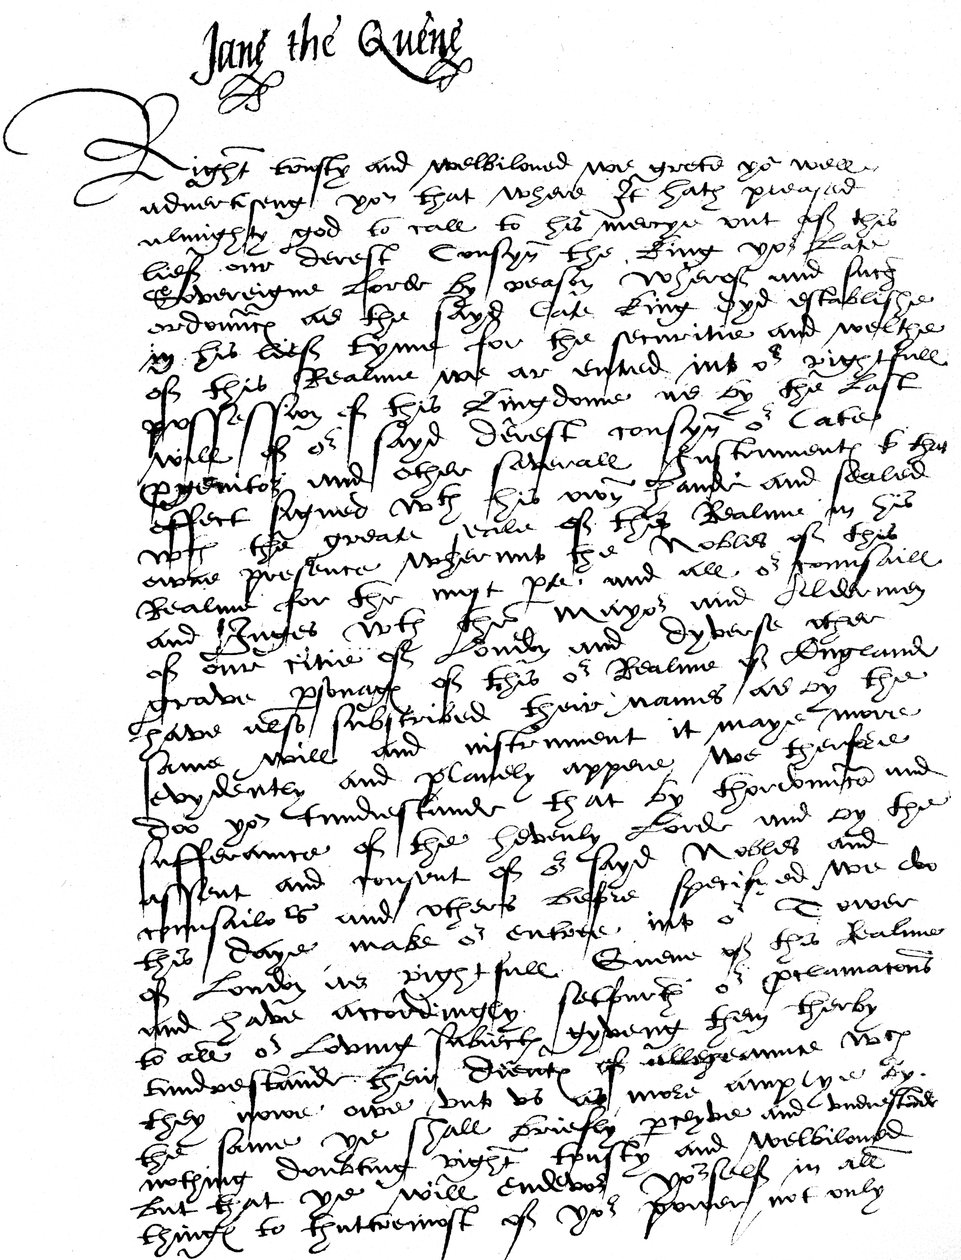 Jane the Quene
Right trusty and welbiloved we grete yo well
advertiseng yor that where It hath pleased
almighty god to call to his mercye out of this
lief our derest Cousyn the King yor Late
Sovereigne Lorde by reason wherof and such
ordonncs as the sayd late King dyd establishe
in his lief tyme for the securitie and welthe
of this Realme we ar entred into or rightfull
possession of this Kingdome as by the Last
will of or sayd derest cousyn or late
progenitor and other severall Instruments to that
effect signed wth his own hande and sealed
wth the greate seale of this Realme in his
owne presence wherunto the Nobles of this
Realme for the most pte and all or counsaill
and Juges wth the Mayor and Aldermen
of our citie of London and dyverse other
grave psonages of this or Realme of England
have also subscribed their names as by the
same will and instrument it maye more
evydently and playnely appere We therfore
doo yor tundrestande that by thordonnce and
sufferaunce of the hevenly Lorde and by the
assent and consent of or sayd Nobles and
counsailors and others before specified We do
this daye make or entree into or Tower
of London as rightfull Quene of this Realme
and have accordingly setfurth or pclamacons
to all or Loving subiects gyveng them therby
tundrestande their dueties of allegeaunce wch
they nowe owe unto us as more amplye by
the same ye shall briefly pceyve and undrestande
nothing doubting right trusty and welbiloved
but that ye will endevor yorself in all
things to thuttermost of yor power not only